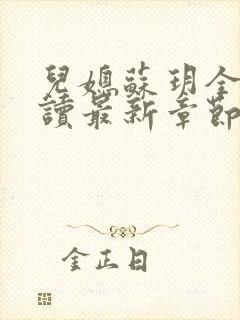 兒媳蘇玥全
讀最新章節
金正日